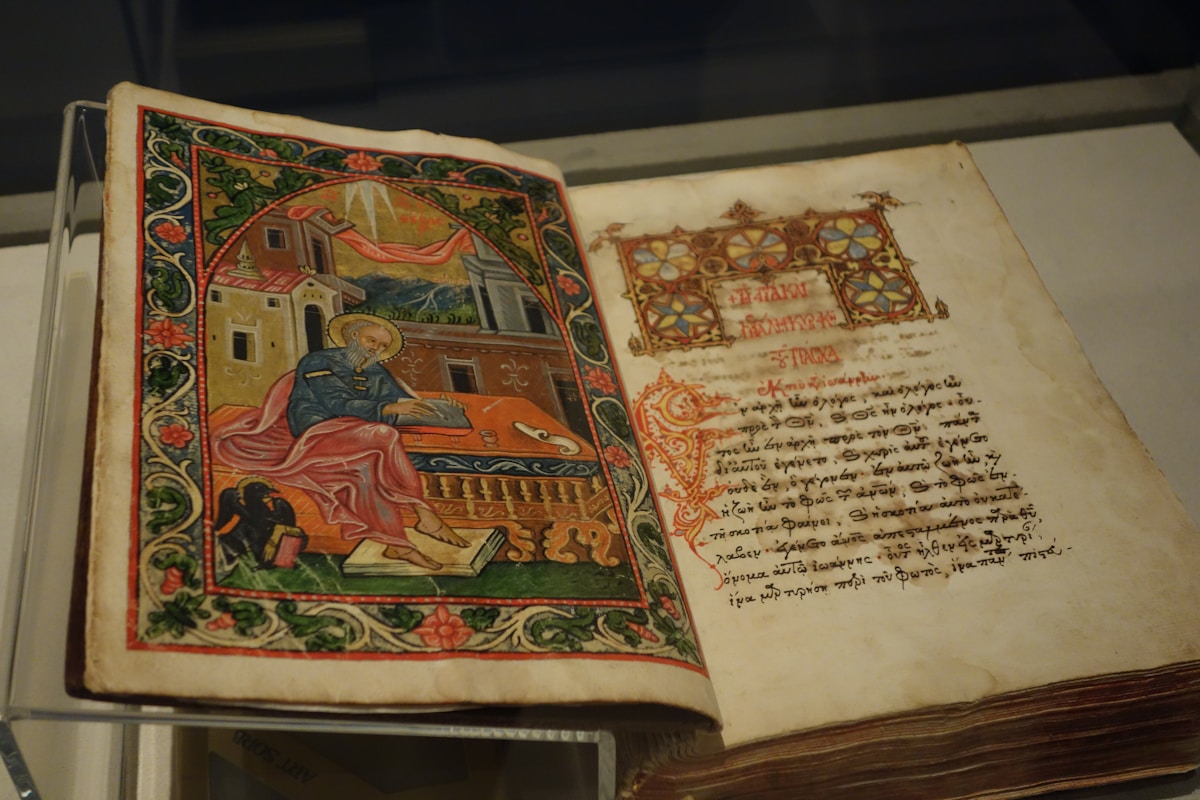 πάσχα
ν ἀρχῇ ἦν ὁ λόγος, καὶ ὁ λόγος ἦν
πρὸς τὸν θν, καὶ θς ἦν ὁ λόγος. οὗ
τος ἦν ἐν ἀρχῇ πρὸς τὸν θν. πάντ
δι αὐτοῦ ἐγένετο, καὶ χωρὶς αὐτ ἐγένετο
οὐδὲ ἕν, ὃ γέγονεν. ἐν αὐτῷ ζωὴ ἦν, καὶ
ἡ ζωὴ ἦν τὸ φῶς τ ἀνων, καὶ τὸ φῶς ἐν
τῇ σκοτίᾳ φαίνει, καὶ ἡ σκοτία αὐτὸ οὐ κατέ
λαβεν. ἐγένετο ἄνος ἀπεσταλμένος παρὰ θυ,
ὄνομα αὐτῷ ἰωάννης. οὗτος ἦλθεν εἰς μρτυρί,
ἵνα μρτυρήσῃ περὶ τοῦ φωτός, ἵνα παντ πιστ
ART SORB